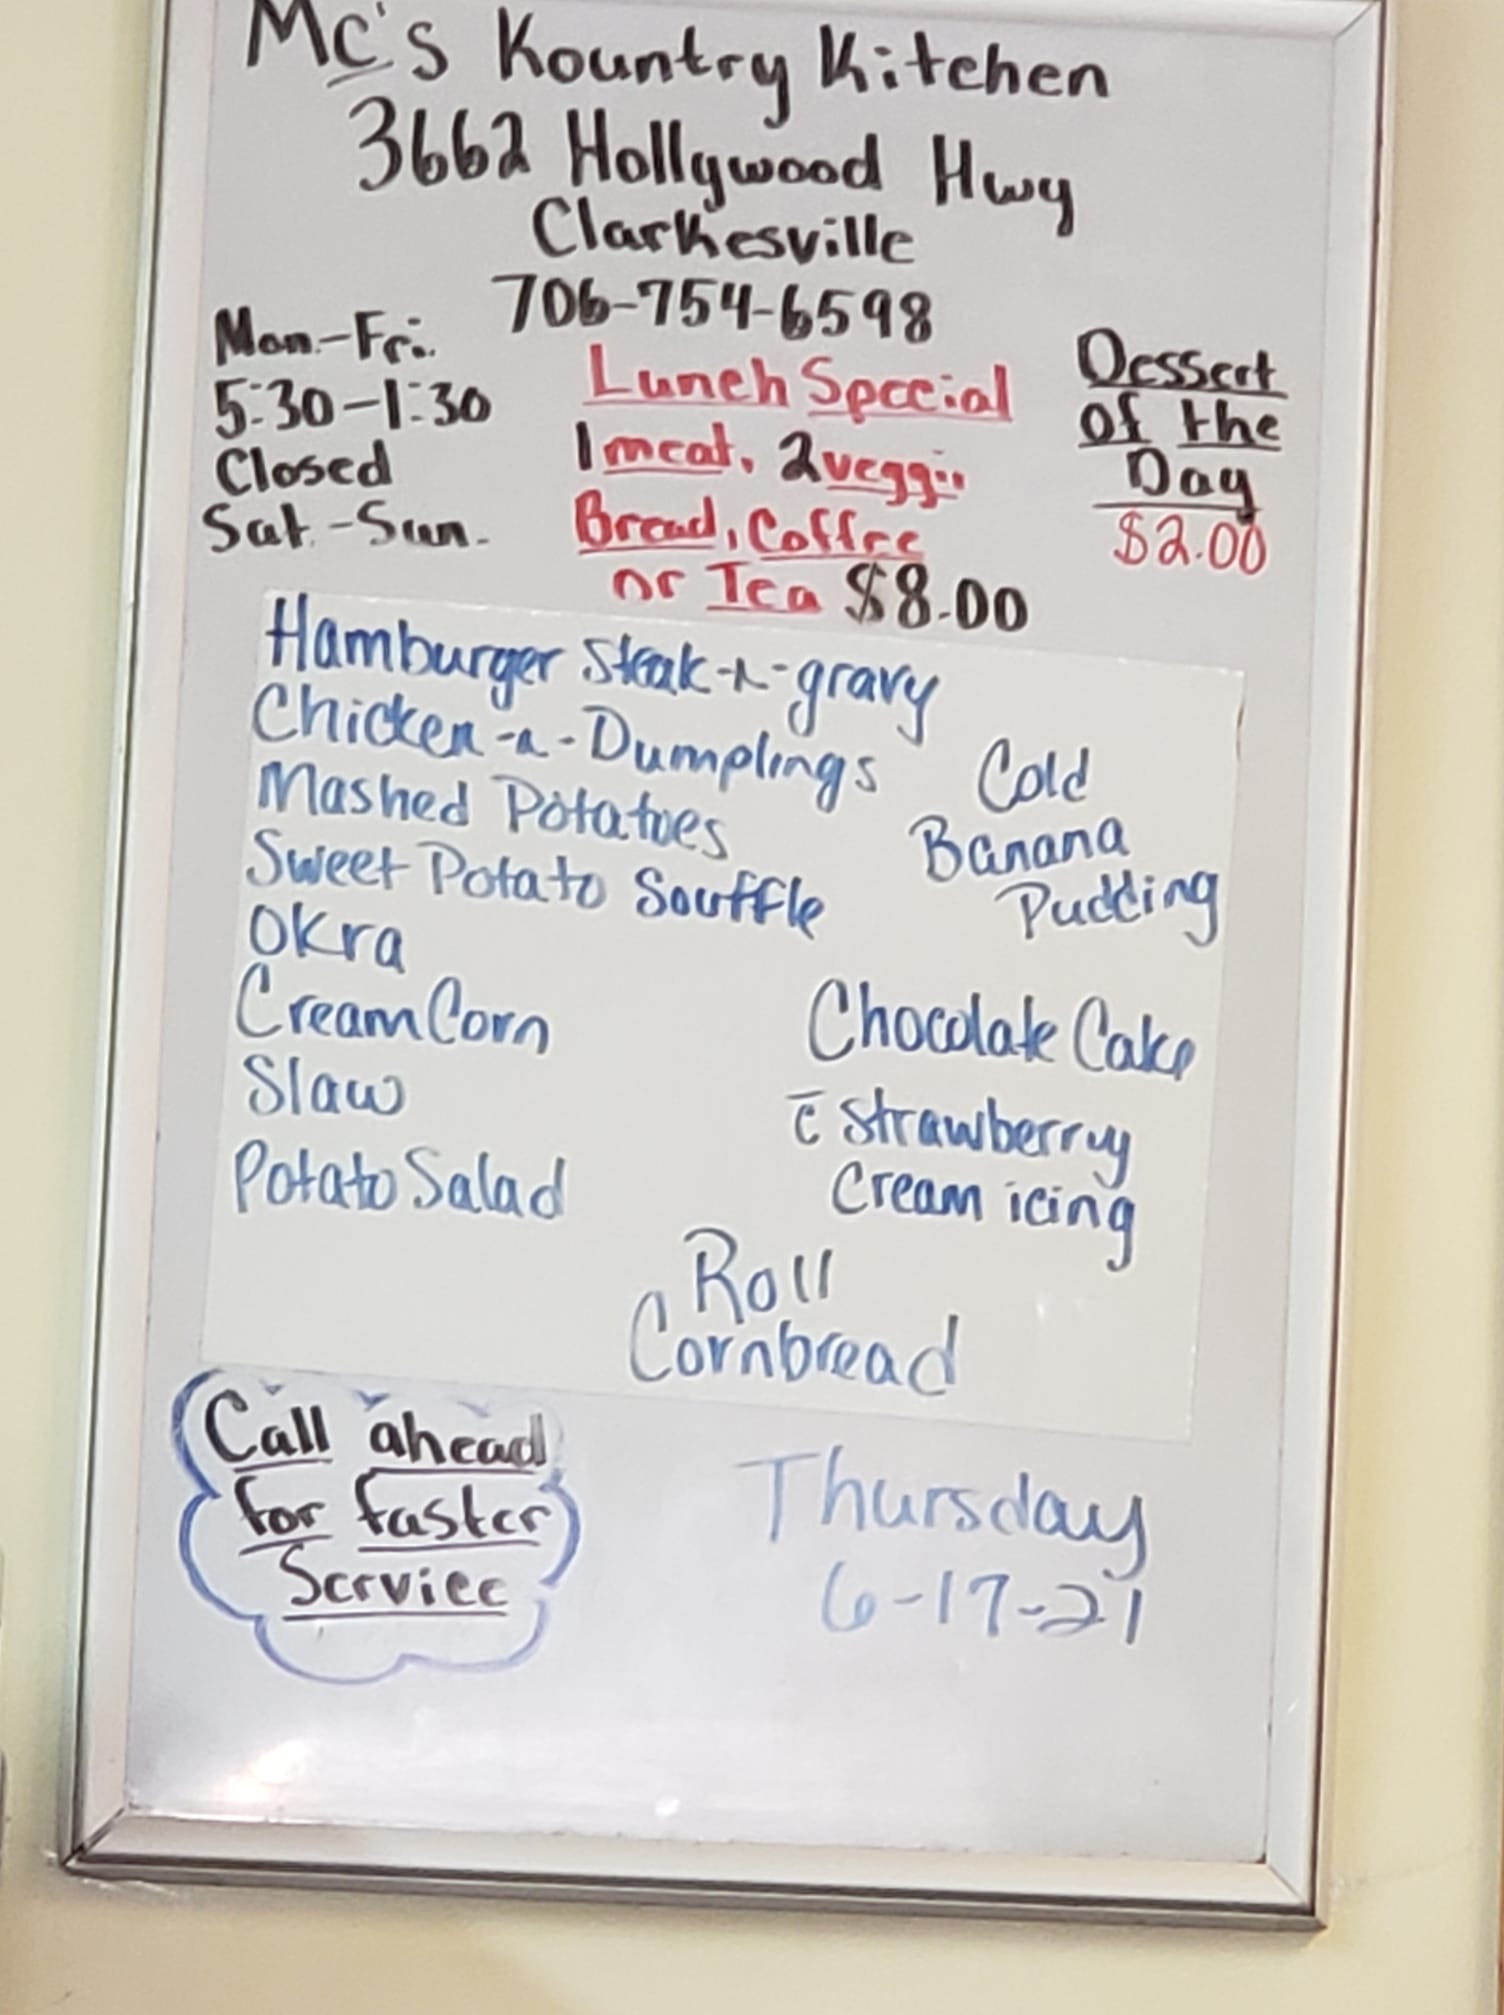 Mc's Kountry Kitchen
3662 Hollywood Hwy
Clarkesville
706-754-6598
Mon.-Fri.
5:30-1:30
Closed
Sat.-Sun.
Lunch Special
1 meat, 2 veggie
Bread, Coffee
or Tea $8.00
Dessert
of the
Day
$2.00
Hamburger Steak-n-gravy
Chicken-n-Dumplings
Mashed Potatoes
Sweet Potato Souffle
Okra
Cream Corn
Slaw
Potato Salad
Cold
Banana
Pudding
Chocolate Cake
c̄ Strawberry
Cream icing
Roll
Cornbread
Call ahead
for faster
Service
Thursday
6-17-21